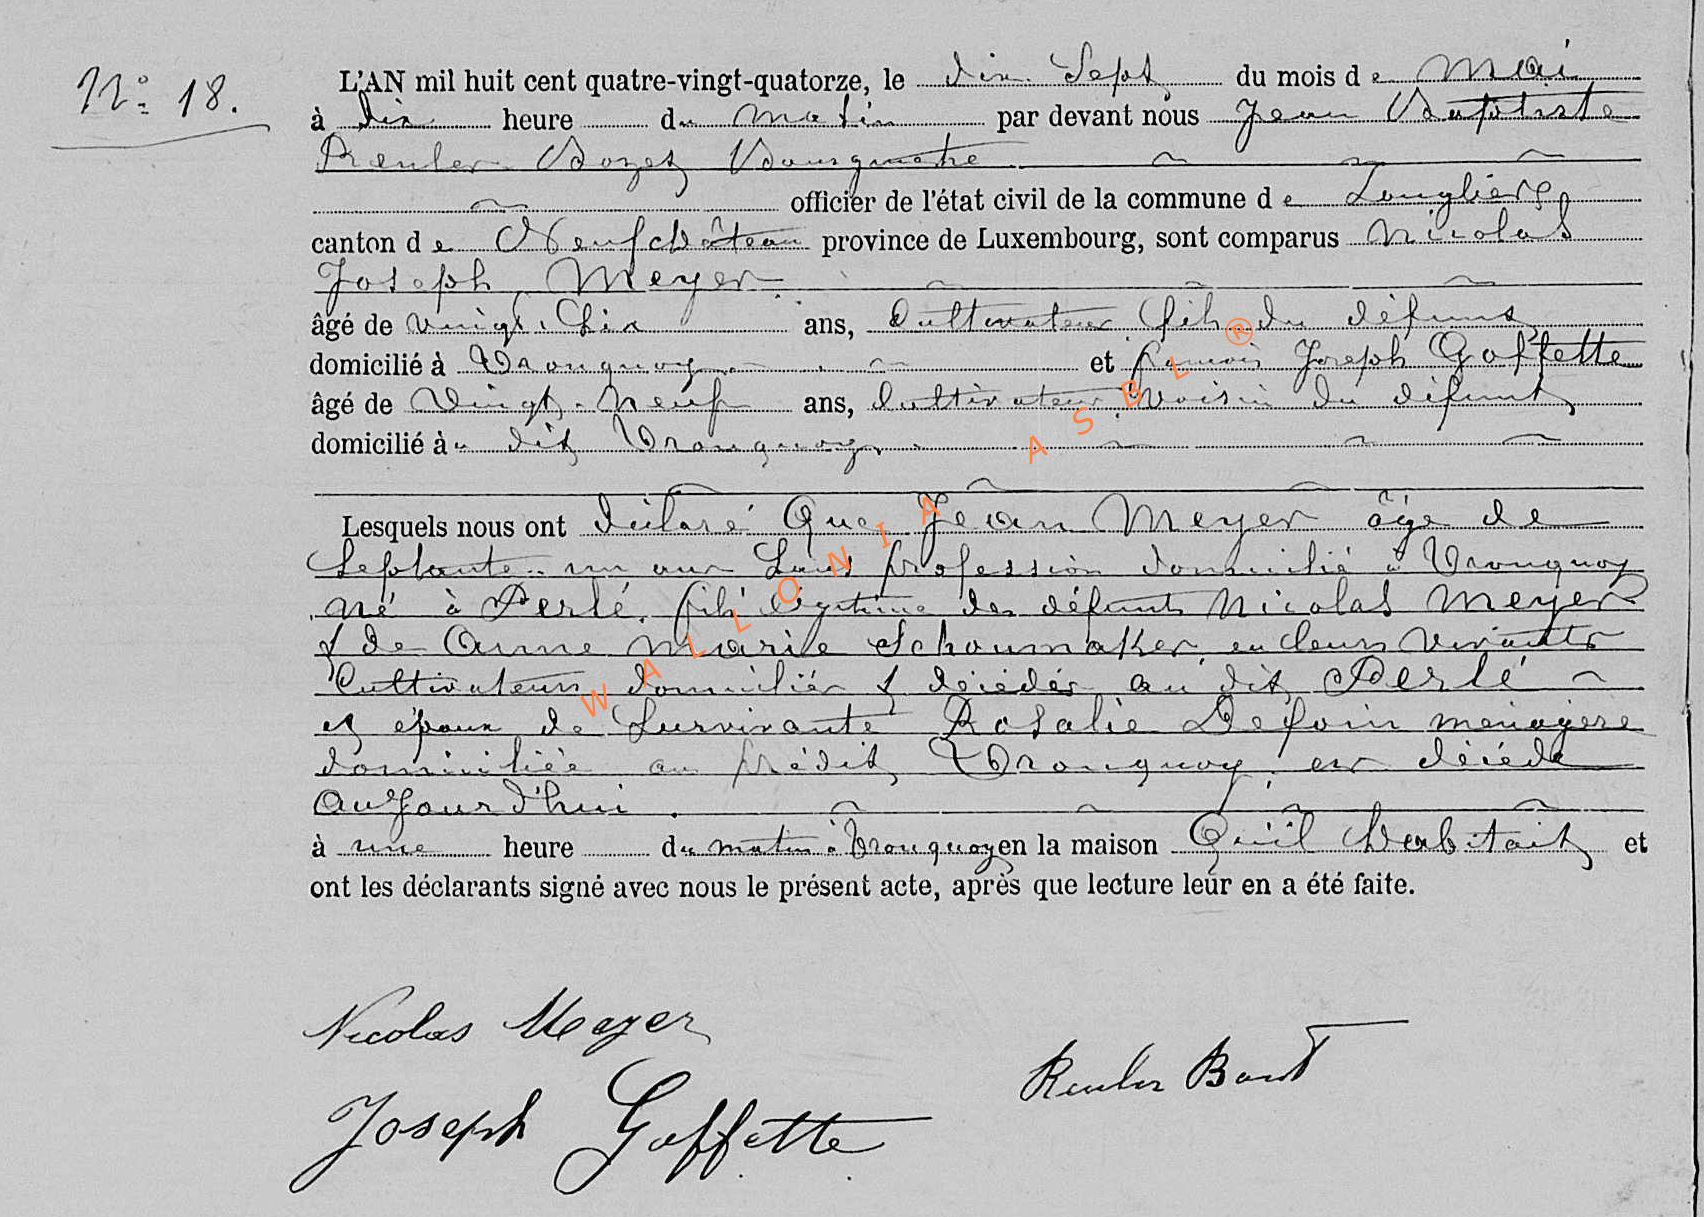 N° 18.
L'AN mil huit cent quatre-vingt-quatorze, le dix Sept du mois de Mai
à dix heure du matin par devant nous Jean Baptiste
Reuler Bourgmestre
officier de l'état civil de la commune de Longlier
canton de Neufchâteau province de Luxembourg, sont comparus Nicolas
Joseph Meyer
âgé de vingt six ans, Cultivateur fils du défunt
domicilié à Tronquoy et Joseph Goffette
âgé de Vingt-Neuf ans, Cultivateur, voisin du défunt
domicilié à u dit Tronquoy
Lesquels nous ont déclaré Que Jean Meyer âgé de
Septante-un ans Sans profession domicilié à Tronquoy
né à Perlé, fils légitime des défunts Nicolas Meyer
& de Anne Marie Schoumaker, en leurs vivants
Cultivateurs domiciliés & décédés au dit Perlé
et époux de Survivante Rosalie Defoin ménagère
domiciliée au prédit Tronquoy, est décédé
Aujourd'hui.
à une heure du matin à Tronquoy en la maison Qu'il Habitait et
ont les déclarants signé avec nous le présent acte, après que lecture leur en a été faite.
Nicolas Meyer
Reuler Baust
Joseph Goffette
WALLONIA ASBL ®